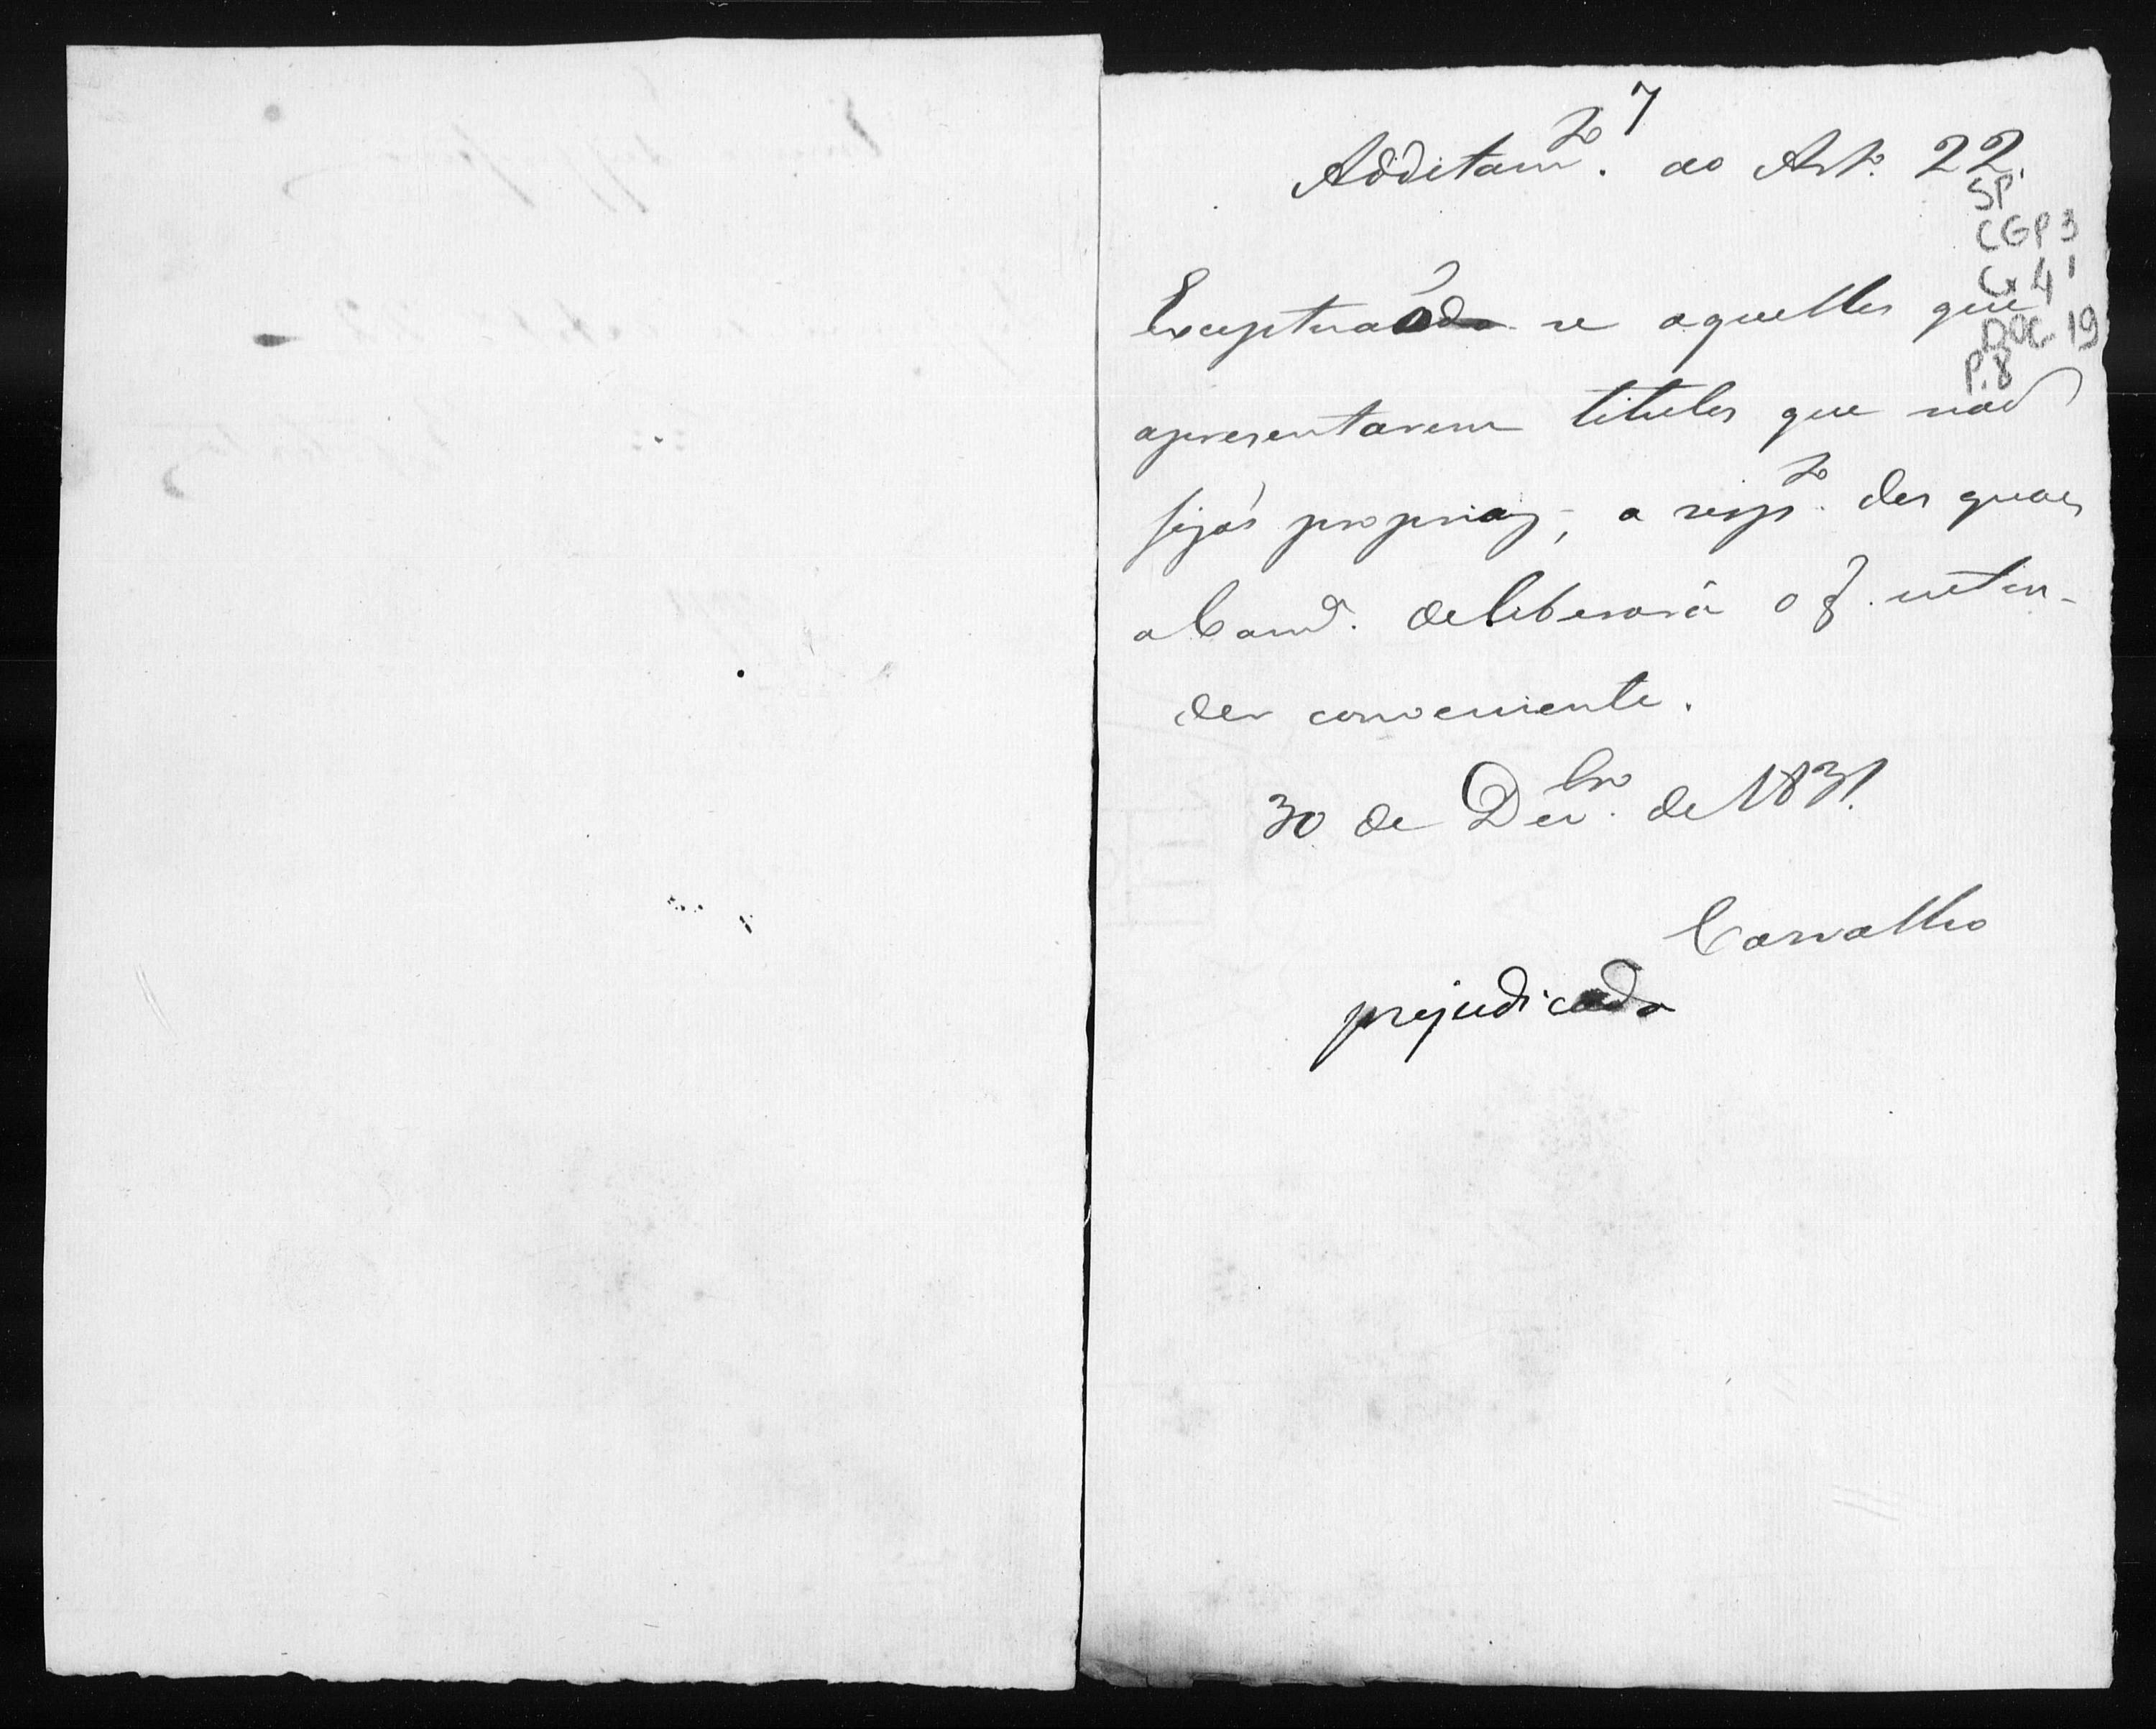 7
Additam.to ao Art.o 22.
SP
CGP3
Cx 41
DOC 19
P.8
Exceptuaõ se aquelles que
apresentarem titulos que naõ
sejaõ proprios, a resp.to dos quaes
a Cam.a deliberará o q. enten-
der conveniente.
30 de Dez.bro de 1831.
Carvalho
prejudicado